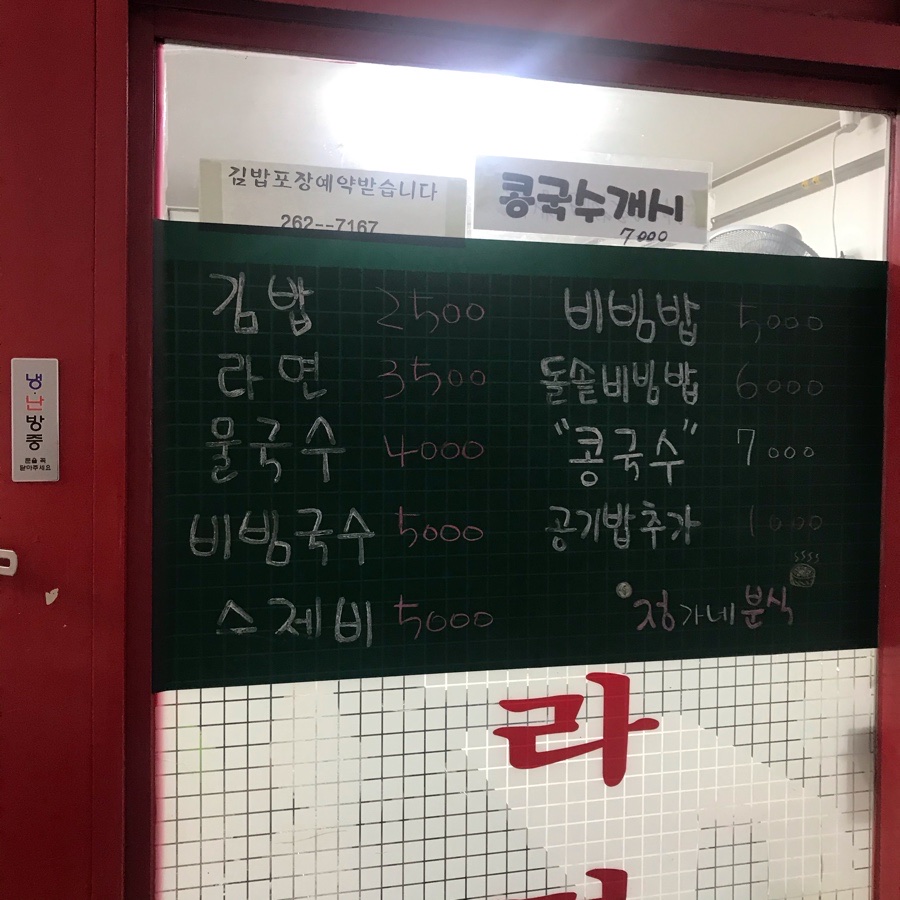 김밥포장예약받습니다
262--7167
콩국수개시
7000
김밥 2500
라면 3500
물국수 4000
비빔국수 5000
스제비 5000
비빔밥 5000
돌솥비빔밥 6000
"콩국수" 7000
공기밥추가 1000
정가네분식
냉·난방중
문을 꼭
닫아주세요
라